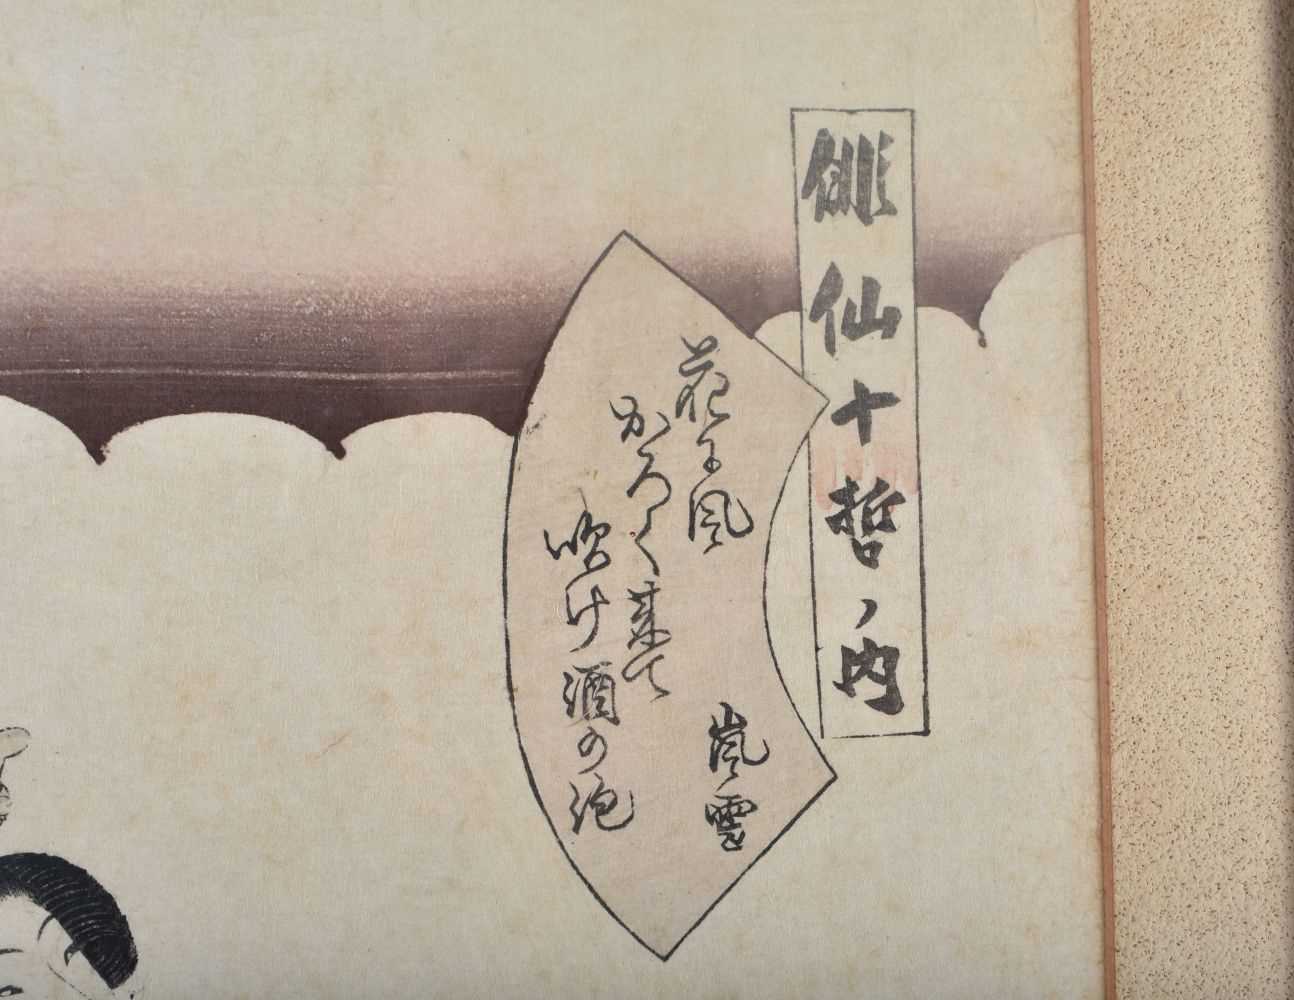 俳仙十哲ノ内
花に風
かろく来て
吹け酒の泡
嵐雪